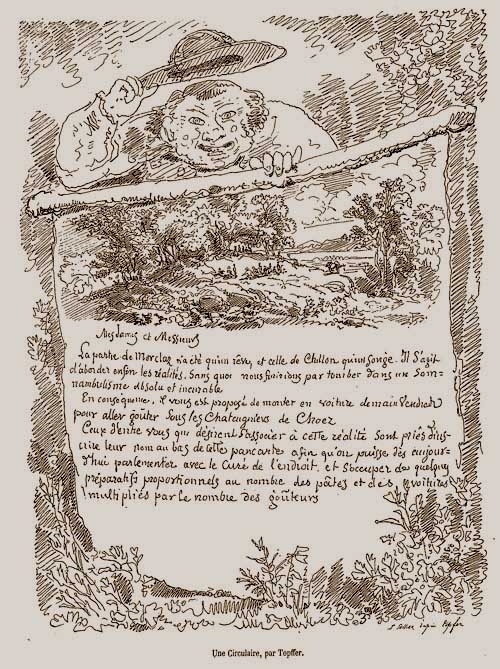 Mesdames et Messieurs
La partie de Morclaz n'a été qu'un rêve, et celle de Chillon qu'un songe. Il S'agit
d'aborder enfin les réalités. Sans quoi nous finirions par tomber dans un Som-
nambulisme absolu et incurable
En conséquence, il vous est proposé de monter en voiture demain Vendredi
pour aller goûter sous les Chataigniers de Choex
Ceux d'entre vous qui désirent s'associer à cette réalité sont priés d'ins-
crire leur nom au bas de cette pancarte afin qu'on puisse dès aujour-
d'hui parlementer avec le Curé de l'endroit, et s'occuper des quelques
préparatifs proportionnels au nombre des pâtes et des voitures
multipliés par le nombre des goûteurs
Une Circulaire, par Topffer.